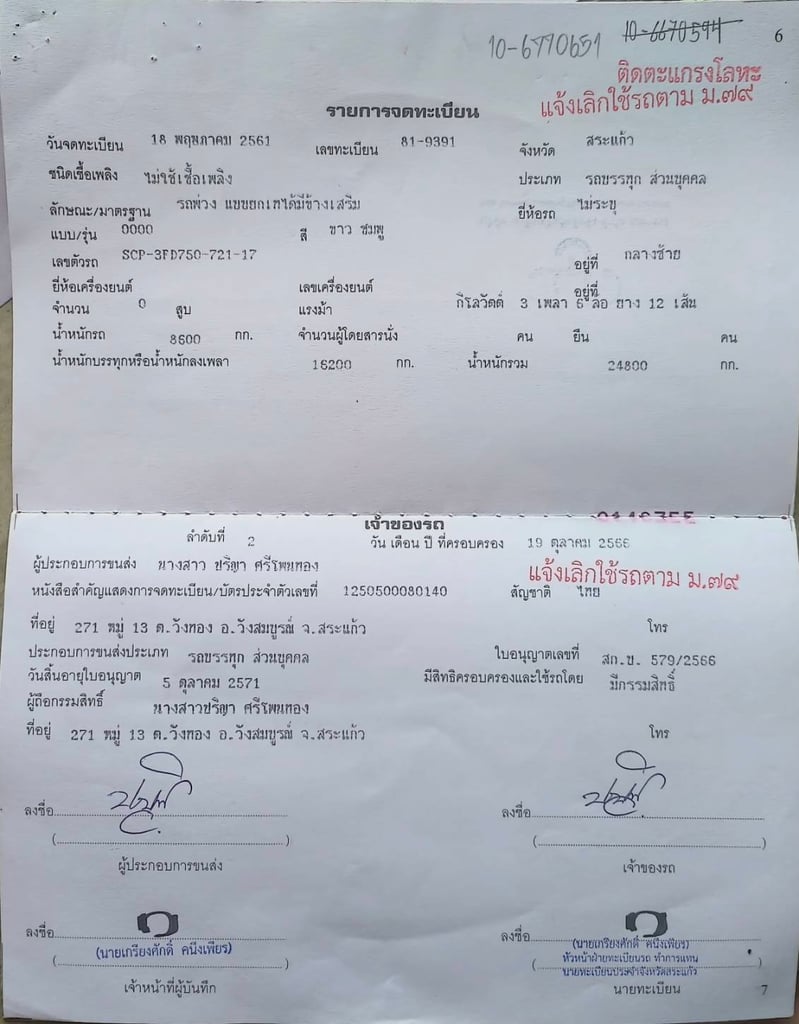 10-6770651 10-6670594 6
ติดตะแกรงโลหะ
แจ้งเลิกใช้รถตาม ม.๗๙
รายการจดทะเบียน
วันจดทะเบียน 18 พฤษภาคม 2561 เลขทะเบียน 81-9391 จังหวัด สระแก้ว
ชนิดเชื้อเพลิง ไม่ใช้เชื้อเพลิง ประเภท รถบรรทุก ส่วนบุคคล
ลักษณะ/มาตรฐาน รถพ่วง แบบยกเทได้มีข้างเสริม ยี่ห้อรถ ไม่ระบุ
แบบ/รุ่น 0000 สี ขาว ชมพู
เลขตัวรถ SCP-3FD750-721-17 อยู่ที่ กลางซ้าย
ยี่ห้อเครื่องยนต์ เลขเครื่องยนต์ อยู่ที่
จำนวน 0 สูบ แรงม้า กิโลวัตต์ 3 เพลา 6 ล้อ ยาง 12 เส้น
น้ำหนักรถ 8600 กก. จำนวนผู้โดยสารนั่ง คน ยืน คน
น้ำหนักบรรทุกหรือน้ำหนักลงเพลา 16200 กก. น้ำหนักรวม 24800 กก.
เจ้าของรถ
ลำดับที่ 2 วัน เดือน ปี ที่ครอบครอง 19 ตุลาคม 2566
ผู้ประกอบการขนส่ง นางสาว ปริญา ศรีโพนทอง แจ้งเลิกใช้รถตาม ม.๗๙
หนังสือสำคัญแสดงการจดทะเบียน/บัตรประจำตัวเลขที่ 1250500080140 สัญชาติ ไทย
ที่อยู่ 271 หมู่ 13 ต.วังทอง อ.วังสมบูรณ์ จ.สระแก้ว โทร
ประกอบการขนส่งประเภท รถบรรทุก ส่วนบุคคล ใบอนุญาตเลขที่ สก.บ. 579/2566
วันสิ้นอายุใบอนุญาต 5 ตุลาคม 2571 มีสิทธิครอบครองและใช้รถโดย มีกรรมสิทธิ์
ผู้ถือกรรมสิทธิ์ นางสาวปริญา ศรีโพนทอง
ที่อยู่ 271 หมู่ 13 ต.วังทอง อ.วังสมบูรณ์ จ.สระแก้ว โทร
ลงชื่อ ลงชื่อ
(....................) (....................)
ผู้ประกอบการขนส่ง เจ้าของรถ
ลงชื่อ ลงชื่อ
(นายเกรียงศักดิ์ คนึงเพียร) (นายเกรียงศักดิ์ คนึงเพียร)
หัวหน้าฝ่ายทะเบียนรถ ทำการแทน
นายทะเบียนประจำจังหวัดสระแก้ว
เจ้าหน้าที่ผู้บันทึก นายทะเบียน 7